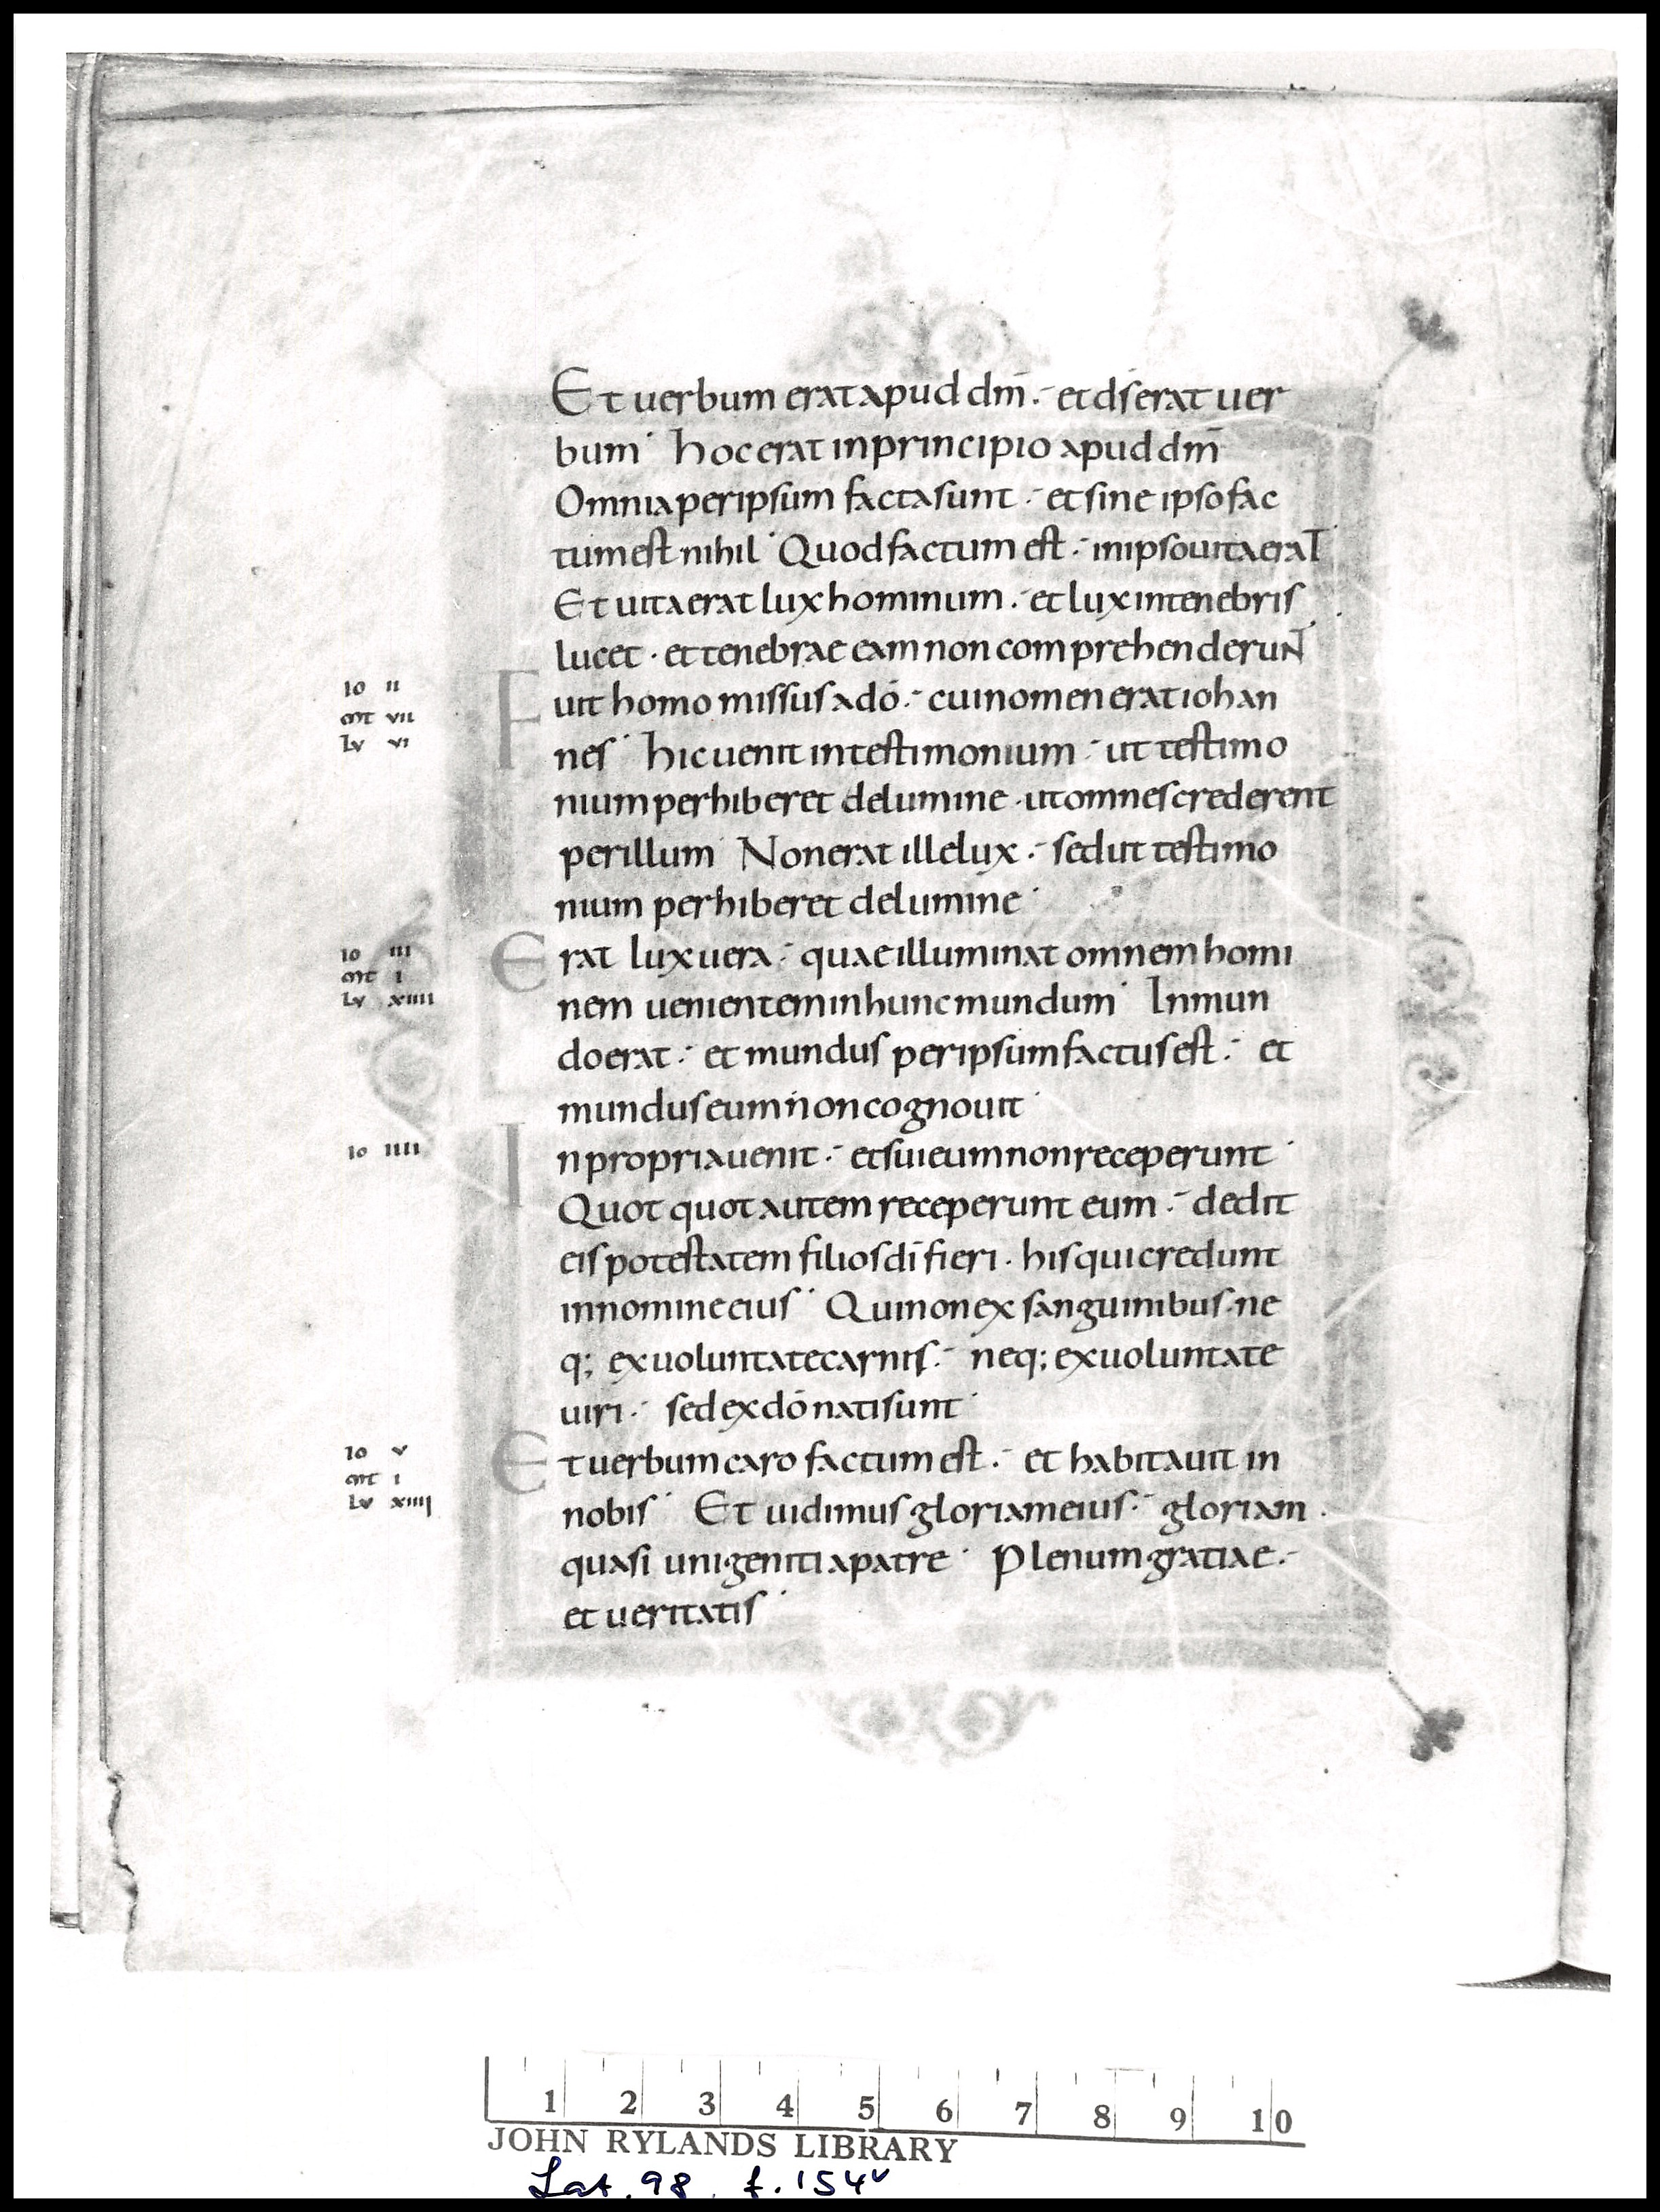 Et uerbum erat apud dm̄ · et ds̄ erat uer
bum · hoc erat in principio apud dm̄
Omnia per ipsum facta sunt · et sine ipso fac
tum est nihil · Quod factum est · in ipso uita erat
Et uita erat lux hominum · et lux in tenebris
lucet · et tenebrae eam non comprehenderunt
IO II
MT VII
LV VI
Fuit homo missus a dō · cui nomen erat iohan
nes · hic uenit in testimonium · ut testimo
nium perhiberet de lumine · ut omnes crederent
per illum · Non erat ille lux · sed ut testimo
nium perhiberet de lumine ·
IO III
MT I
LV XIIII
Erat lux uera · quae illuminat omnem homi
nem uenientem in hunc mundum · In mun
do erat · et mundus per ipsum factus est · et
mundus eum non cognouit ·
IO IIII
In propria uenit · et sui eum non receperunt ·
Quot quot autem receperunt eum · dedit
eis potestatem filios dī fieri · his qui credunt
in nomine eius · Qui non ex sanguinibus · ne
q; ex uoluntate carnis · neq; ex uoluntate
uiri · sed ex dō nati sunt ·
IO V
MT I
LV XIIII
Et uerbum caro factum est · et habitauit in
nobis · Et uidimus gloriam eius · gloriam
quasi unigeniti a patre · Plenum gratiae ·
et ueritatis ·
1 2 3 4 5 6 7 8 9 10
JOHN RYLANDS LIBRARY
Lat. 98. f. 154v